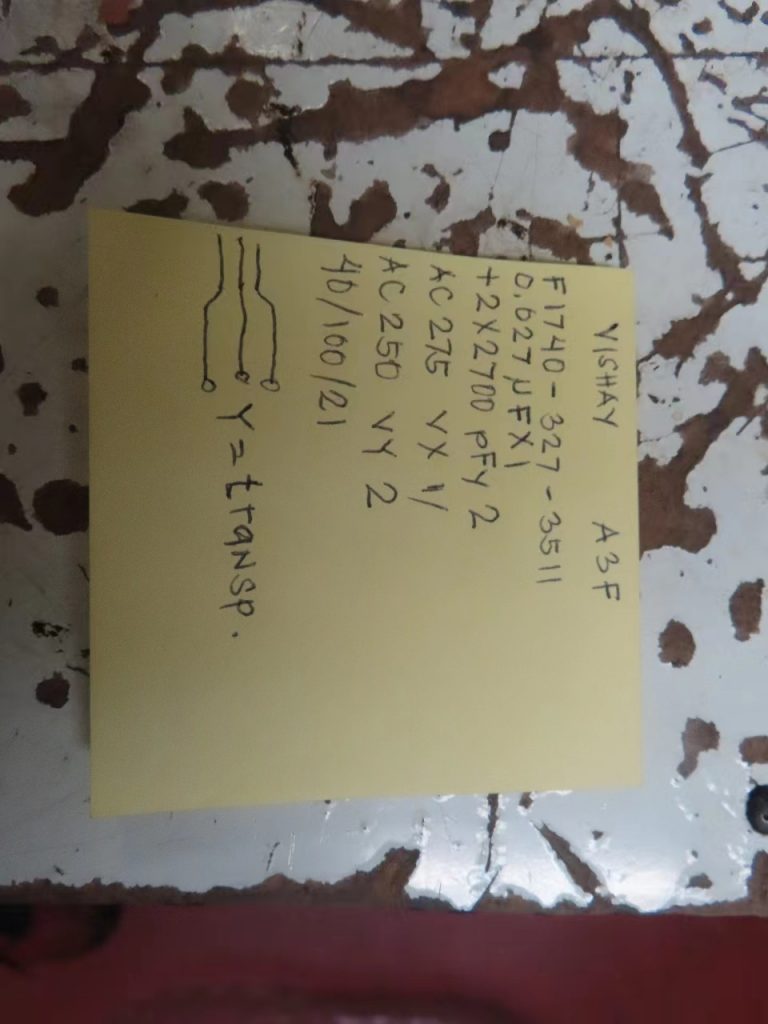 VISHAY A3F
F1740-327-3511
0,627 µFX1
+2X2700 pFY2
AC 275 VX1/
AC 250 VY 2
40/100/21
Y = transp.